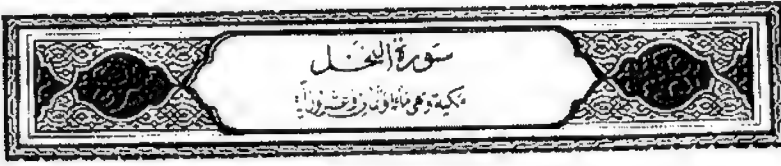 سورة النحل
مكية وهى مائة وثمان وعشرون آية